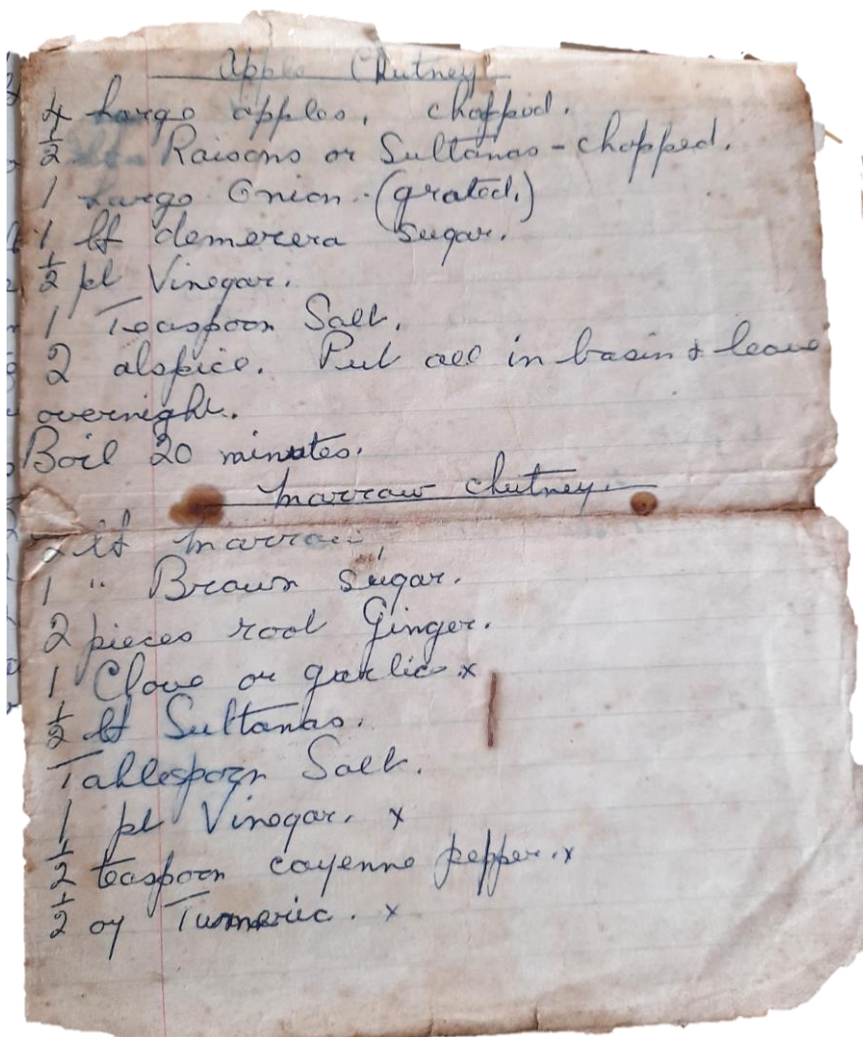 Apple Chutney
4 Large apples, chopped.
1/2 Raisons or Sultanas - chopped.
1 Large Onion. (grated.)
1 lb demerera sugar.
1/2 pt Vinegar.
1 Teaspoon Salt.
2 alspice. Put all in basin & leave
overnight.
Boil 20 minutes.
Marrow chutney.
2 lb Marrow
1 " Brown sugar.
2 pieces root Ginger.
1 Clove or garlic x
1/2 lb Sultanas.
Tablespoon Salt.
1 pt Vinegar. x
1/2 teaspoon cayenne pepper. x
1/2 oz Turmeric. x